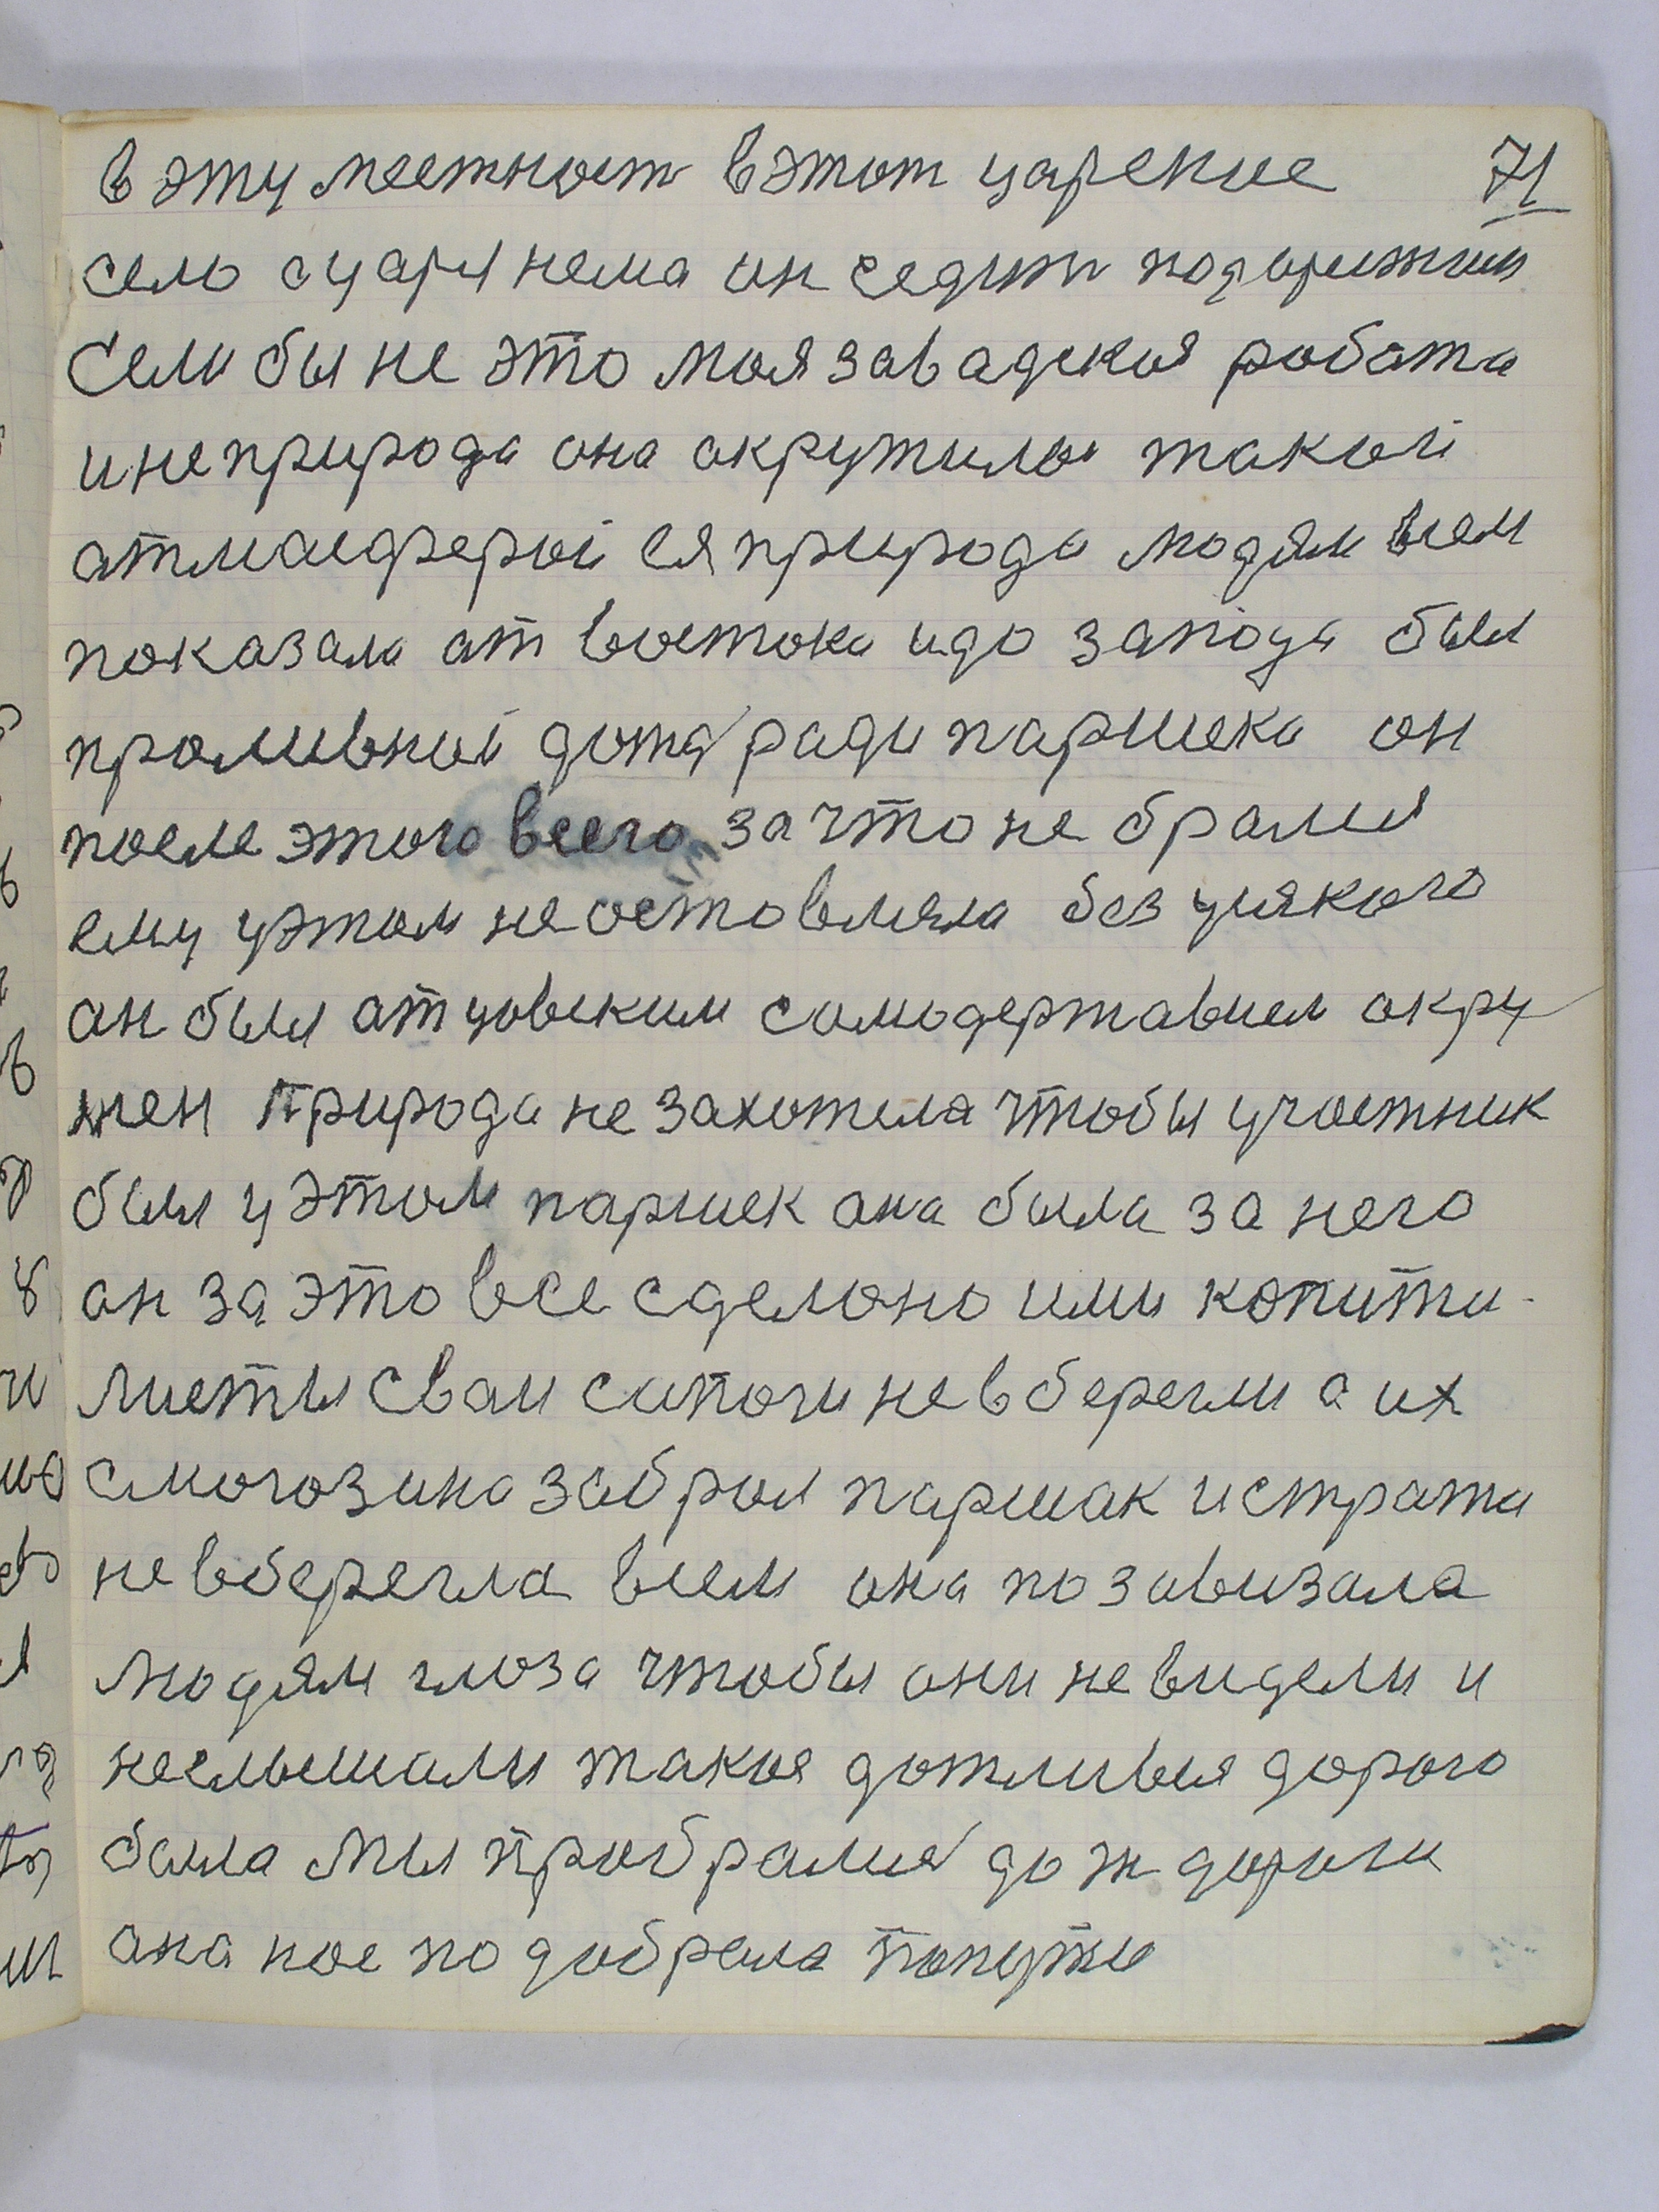 в эту месност вэтот царское 71
село а царя нема он седит под арижим
Сели бы не это моя завадская робота
и не природа она акружило такой
атмасферой ся природа людям всем
показала ат востока и до запода был
проливной дождь ради паршека он
после этого всего за что не брался
ему уэтом не остовляла без уякого
он был атцовским самодержавием акру
жен Природа не захотела чтобы участник
был у этом паршек она была за него
он за это все сделоно ими копити-
листы сваи сапоги не вберегли а их
смогозина забрал паршак и страта
не вберегла всем она позавизала
людям глоза чтобы они не видели и
неслышали такоя дожливоя дорого
была Мы пробрались до ж дороги
она нас подобрала Попути